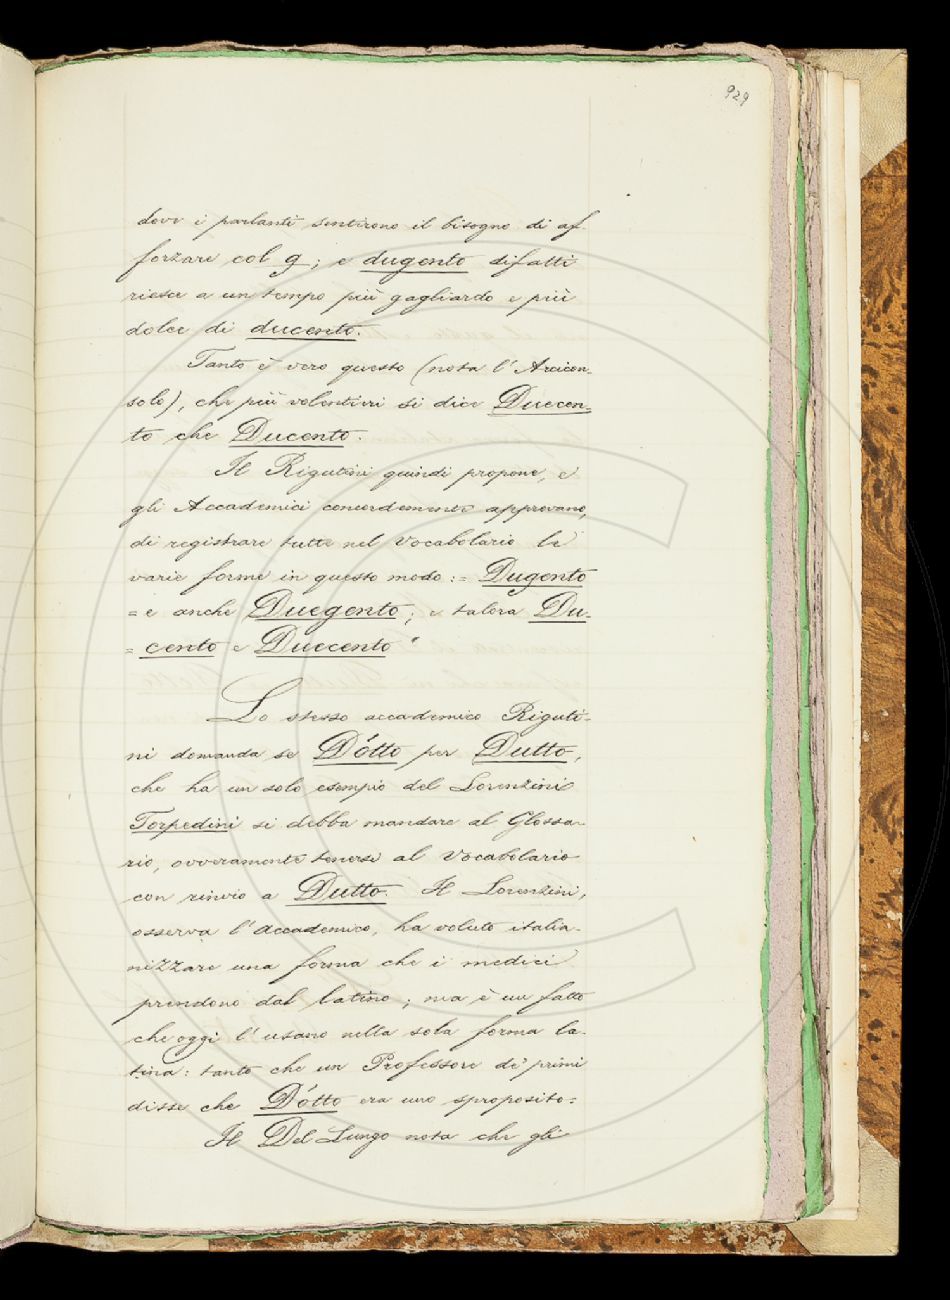 929
dove i parlanti sentirono il bisogno di af-
forzare col g; e dugento difatti
riesce a un tempo più gagliardo e più
dolce di ducento.
Tanto è vero questo (nota l'Arcicon-
solo), che più volentieri si dice Duecen-
to che Ducento.
Il Rigutini quindi propone, e
gli Accademici concordemente approvano,
di registrare tutte nel Vocabolario le
varie forme in questo modo := Dugento
= e anche Duegento; e talora Du-
= cento e Duecento "
Lo stesso accademico Riguti-
ni domanda se Dótto per Dutto,
che ha un solo esempio del Lorenzini
Torpedini si debba mandare al Glossa-
rio, ovveramente tenersi al Vocabolario
con rinvio a Dutto. Il Lorenzini,
osserva l'Accademico, ha voluto italia-
nizzare una forma che i medici
prendono dal latino; ma è un fatto
che oggi l'usano nella sola forma la-
tina: tanto che un Professore de' primi
disse che Dótto era uno sproposito=
Il Del Lungo nota che gli